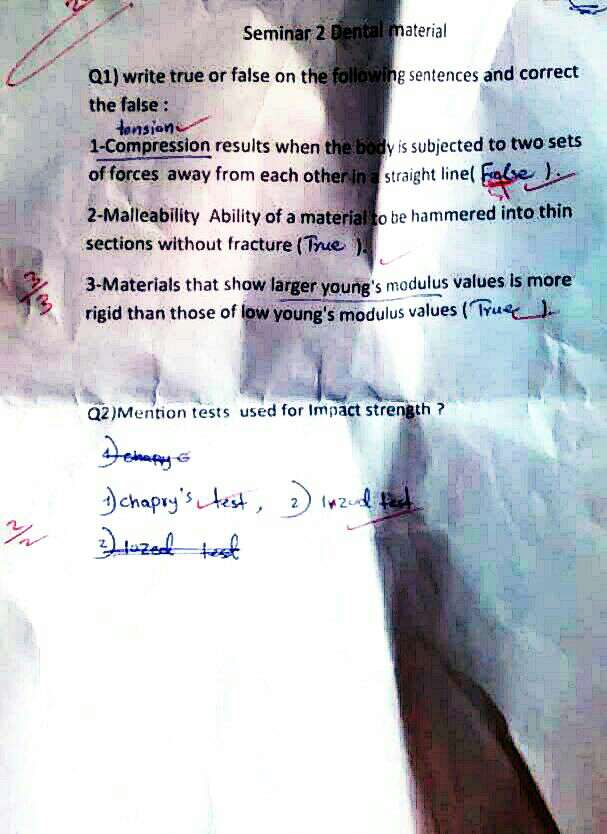 Seminar 2 Dental material
Q1) write true or false on the following sentences and correct
the false :
tension
1-Compression results when the body is subjected to two sets
of forces away from each other in a straight line( False ).
2-Malleability Ability of a material to be hammered into thin
sections without fracture ( True ).
3-Materials that show larger young's modulus values is more
rigid than those of low young's modulus values ( True ).
3/3
Q2)Mention tests used for Impact strength ?
1) chapry's test, 2) Inzod test
2/2
2) test